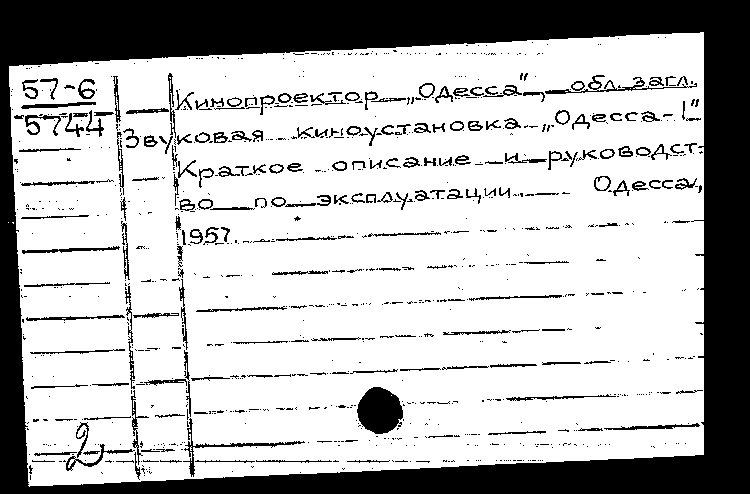 57-6
5744
Кинопроектор „Одесса", обл. загл.
Звуковая киноустановка „Одесса-1"
Краткое описание и руководст-
во по эксплуатации. Одесса,
1957.
2